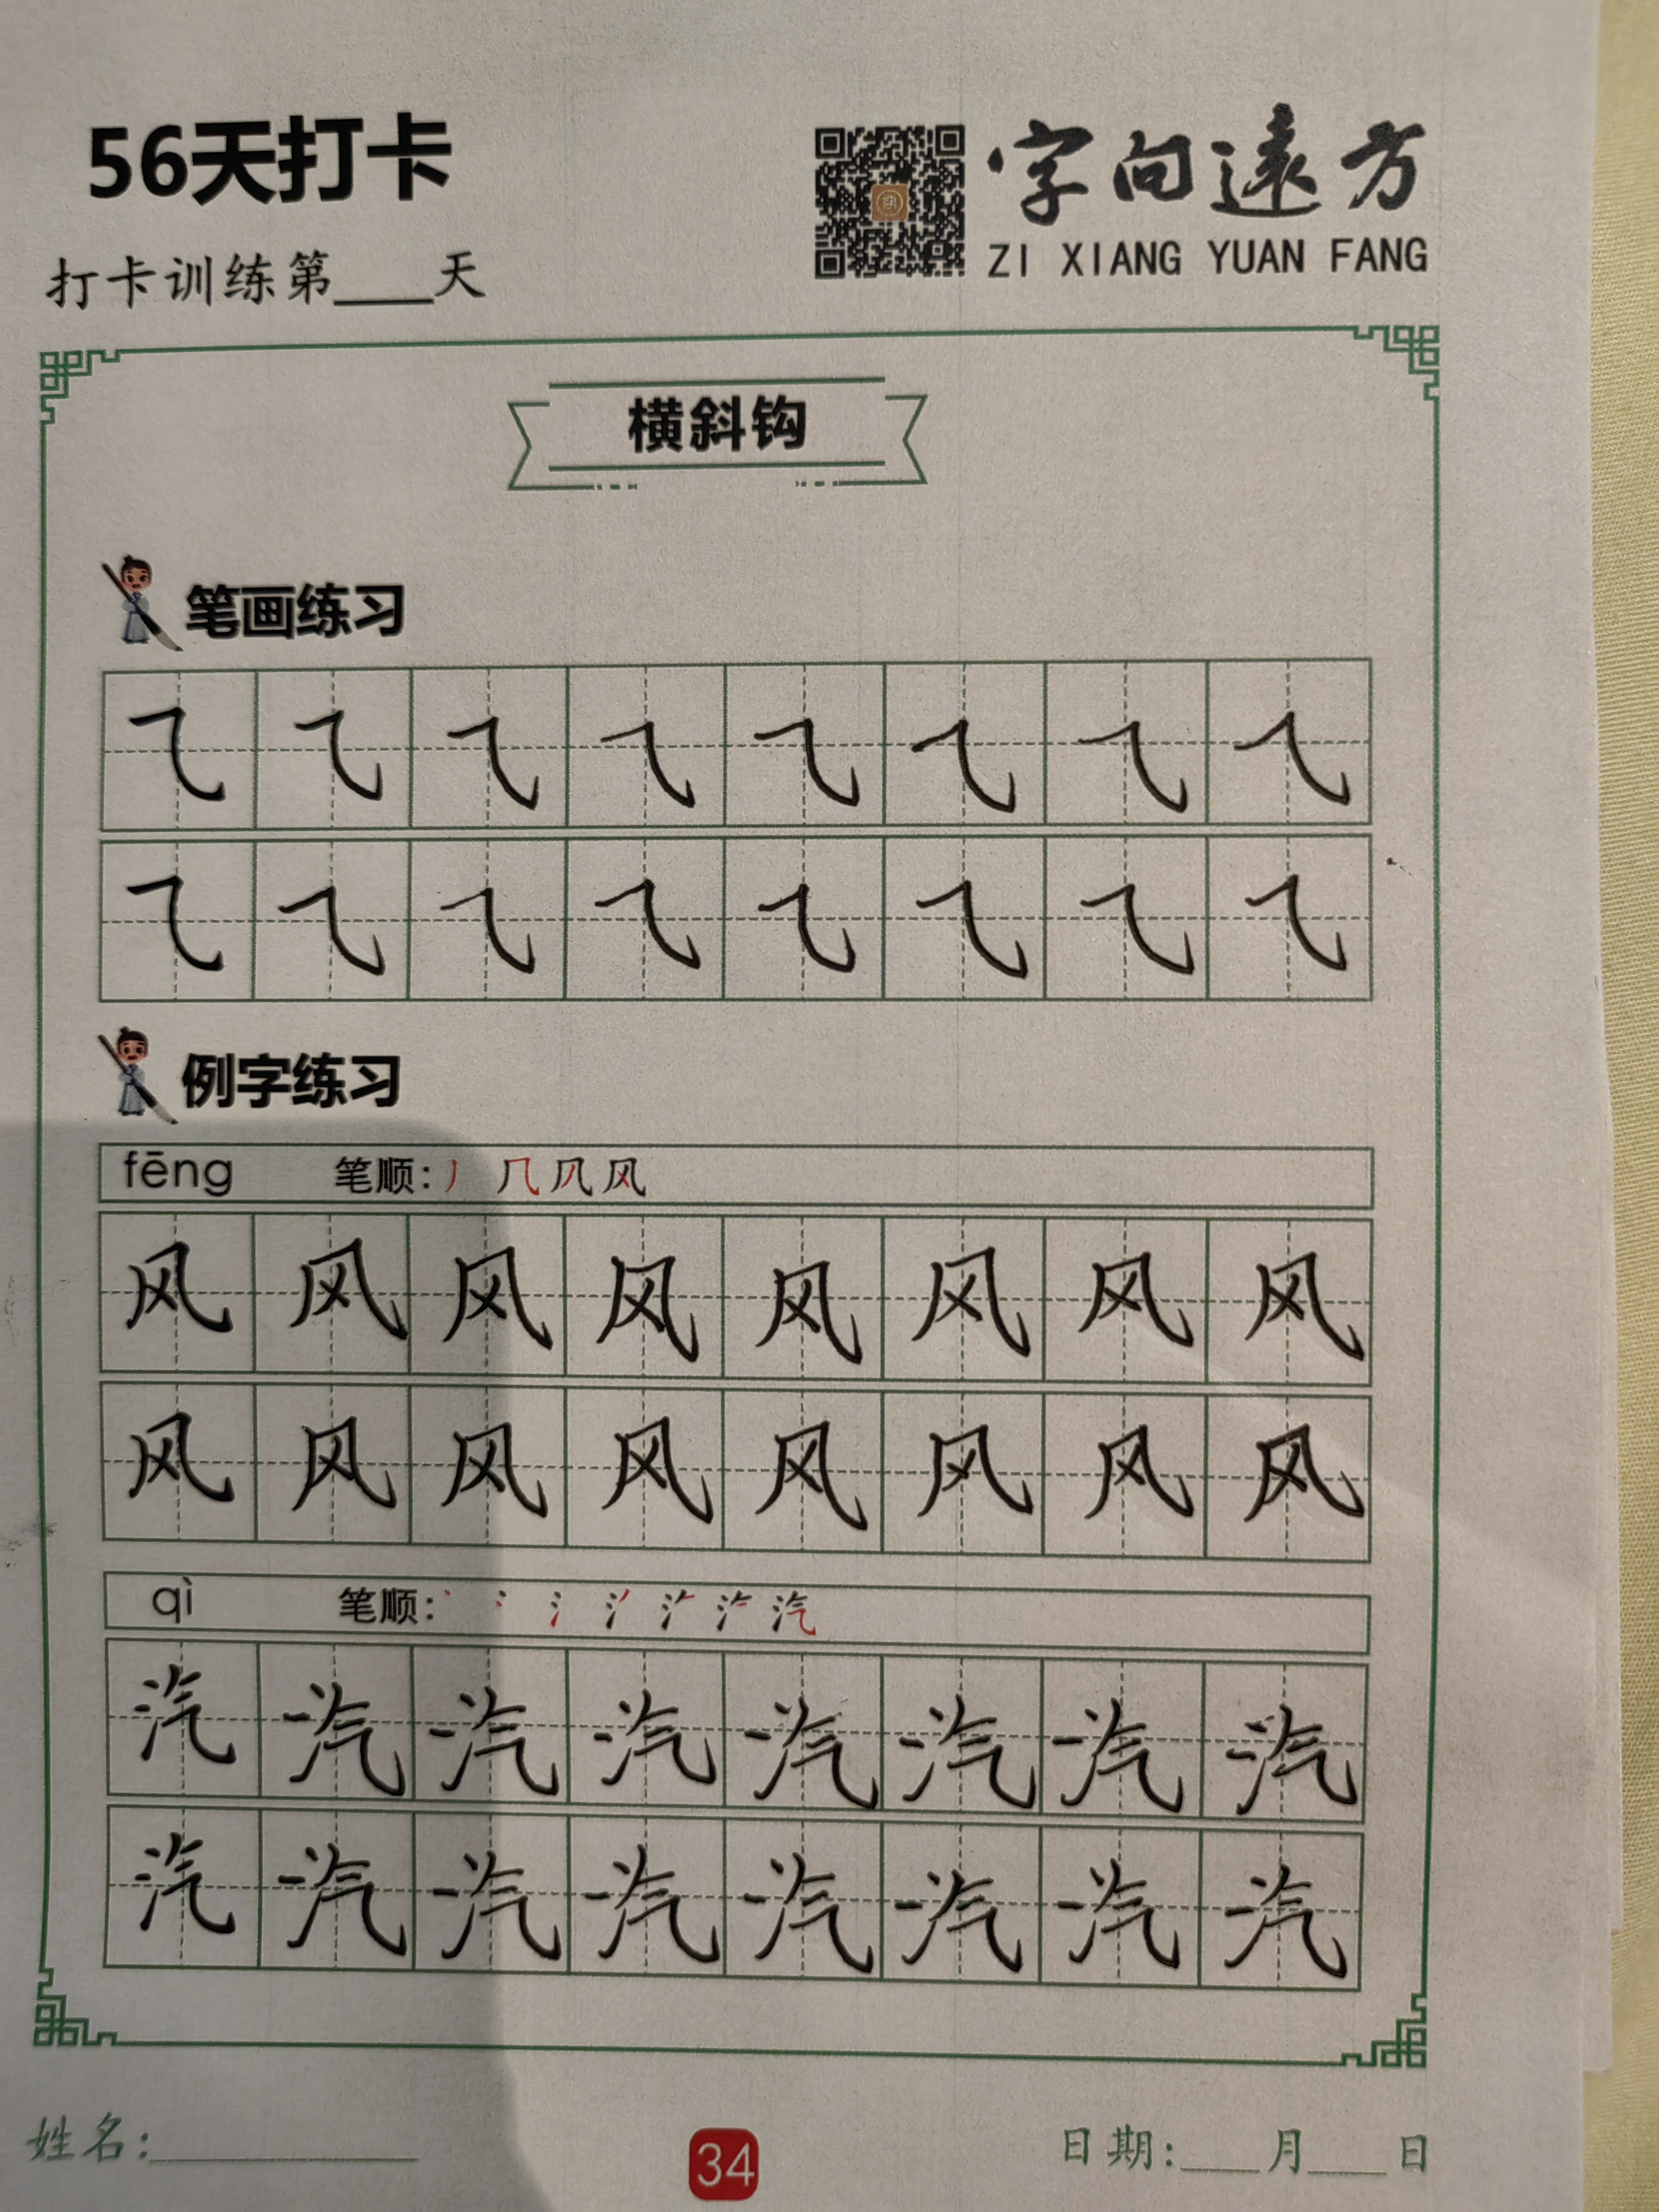 56天打卡
字向遠方
ZI XIANG YUAN FANG
打卡训练第____天
横斜钩
笔画练习
⺄ ⺄ ⺄ ⺄ ⺄ ⺄ ⺄ ⺄
⺄ ⺄ ⺄ ⺄ ⺄ ⺄ ⺄ ⺄
例字练习
fēng 笔顺: 丿 几 凡 风
风 风 风 风 风 风 风 风
风 风 风 风 风 风 风 风
qì 笔顺: 汽
汽 汽 汽 汽 汽 汽 汽 汽
汽 汽 汽 汽 汽 汽 汽 汽
姓名:__________
34
日期:___月___日